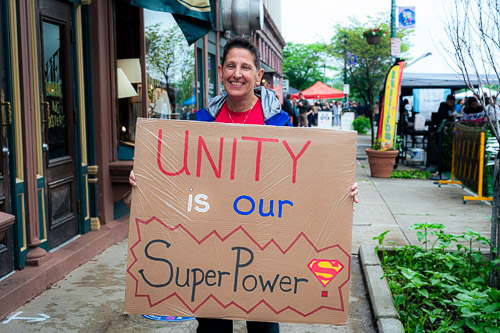 UNITY
is our
SuperPower!